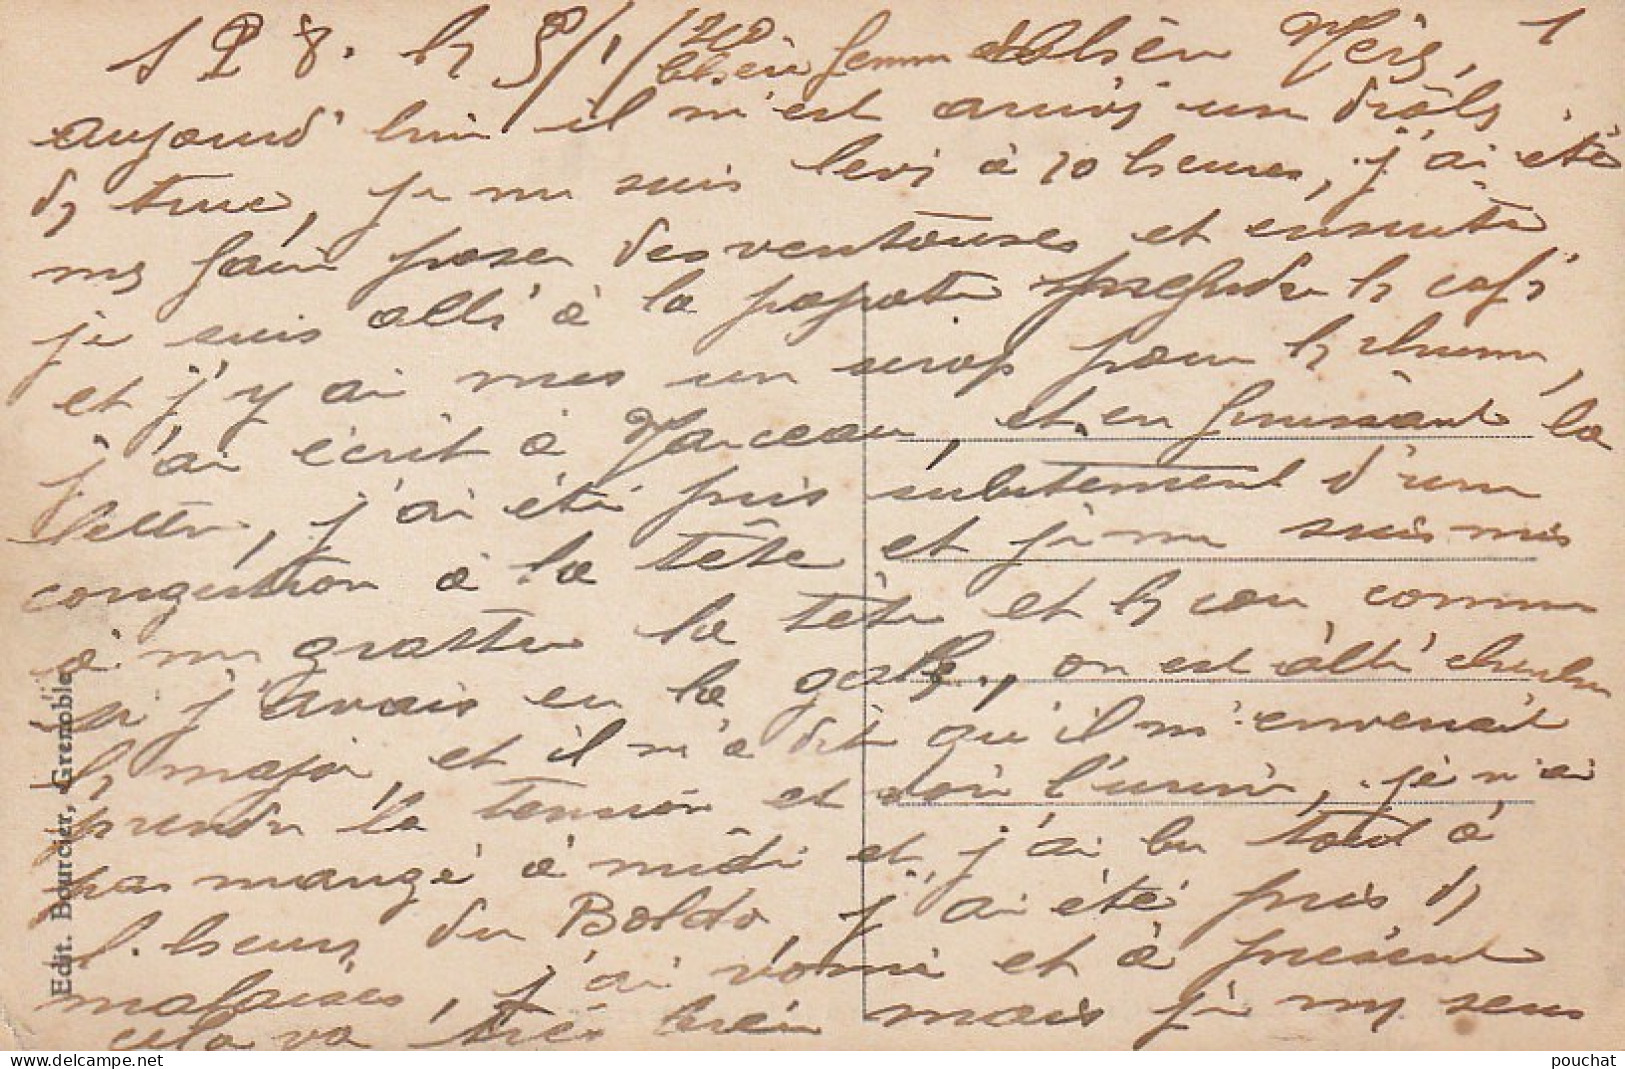 1
aujourd'hui il m'est arrivé un drôle
de truc, je me suis levé à 10 heures, j'ai été
me faire poser des ventouses et ensuite
je suis allé à la popote prendre le café
et j'y ai mes un sirop pour le rhume,
j'ai écrit à Marceau, et en finissant la
lettre, j'ai été pris subitement d'une
congestion à la tête et je me suis mis
à me gratter la tête et le cou comme
si j'avais eu la gale, on est allé chercher
le major, et il m'a dit qu'il m'
prendre la tension et voir l'urine, je n'ai
pas mangé à midi et j'ai bu tout à
l'heure du Boldo, j'ai été pris de
malaises, j'ai vomi et à présent
cela va très bien mais je me sens
Edit. Bourcier, Grenoble
pouchat